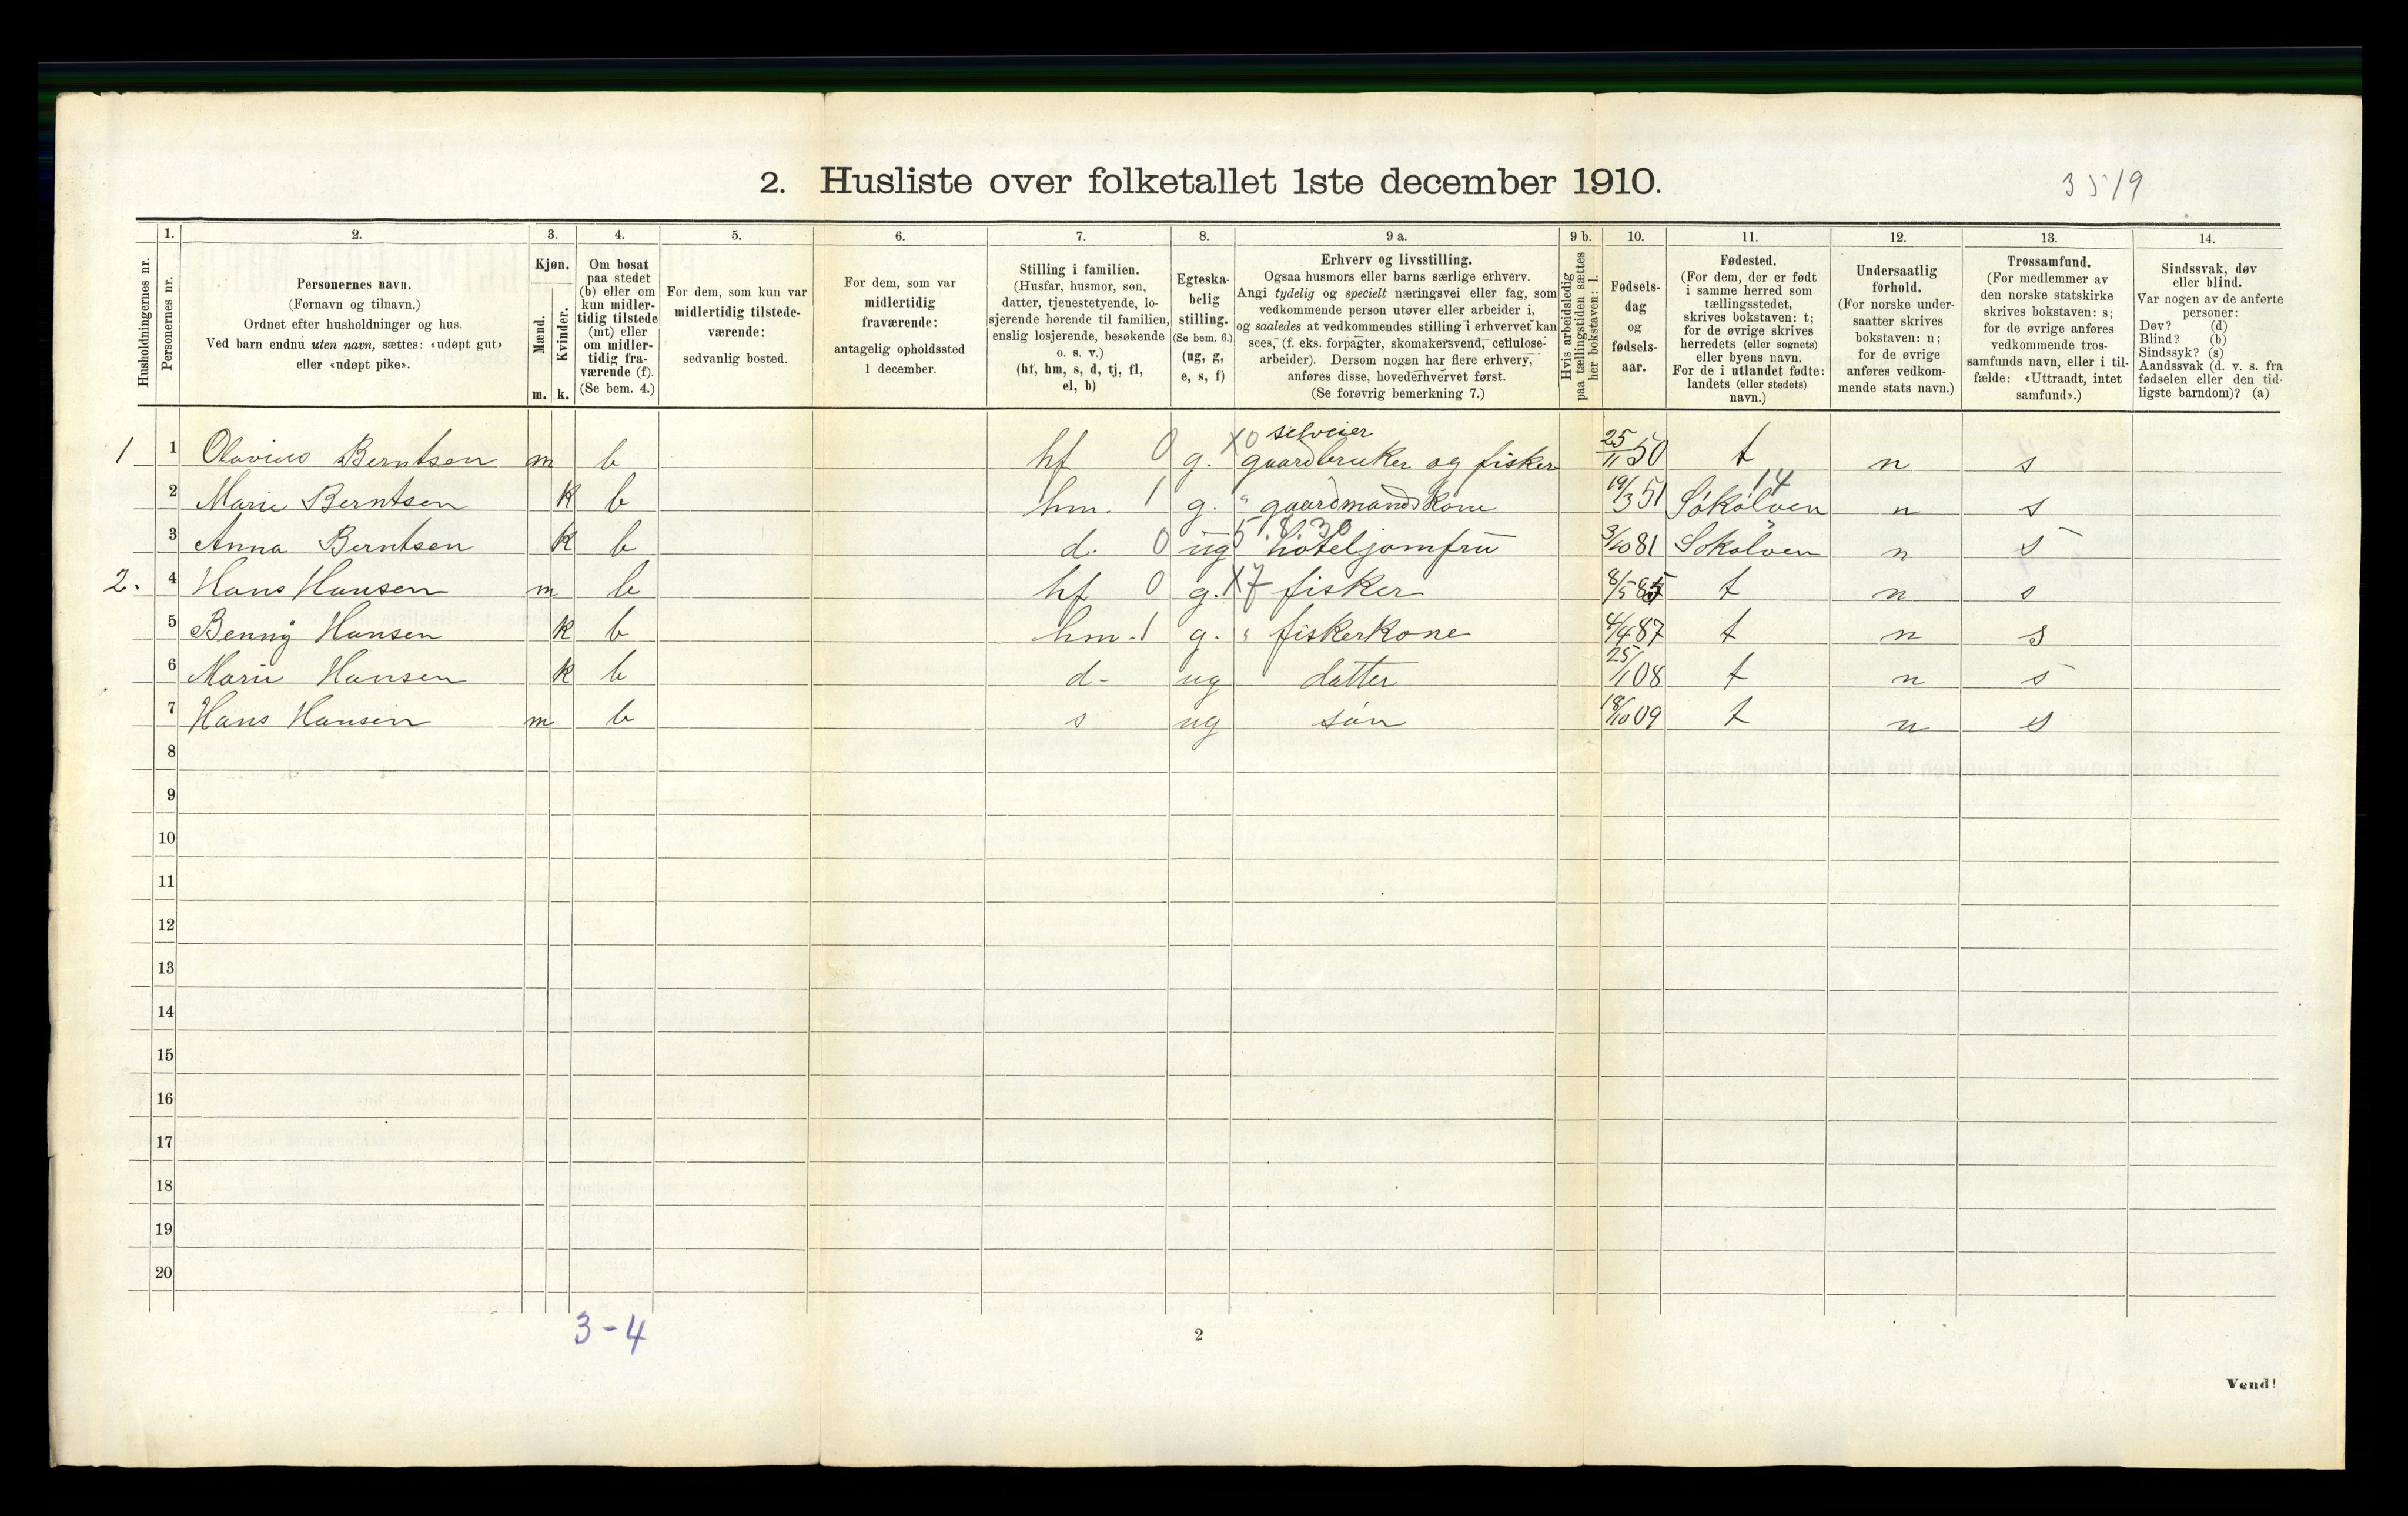 2. Husliste over folketallet 1ste december 1910.
3519
Husholdningernes nr.
1.
Personernes nr.
2.
Personernes navn.
(Fornavn og tilnavn.)
Ordnet efter husholdninger og hus.
Ved barn endnu uten navn, sættes: «udøpt gut»
eller «udøpt pike».
3.
Kjøn.
Mænd.
Kvinder.
m. k.
4.
Om bosat
paa stedet
(b) eller om
kun midler-
tidig tilstede
(mt) eller
om midler-
tidig fra-
værende (f).
(Se bem. 4.)
5.
For dem, som kun var
midlertidig tilstede-
værende:
sedvanlig bosted.
6.
For dem, som var
midlertidig
fraværende:
antagelig opholdssted
1 december.
7.
Stilling i familien.
(Husfar, husmor, søn,
datter, tjenestetyende, lo-
sjerende hørende til familien,
enslig losjerende, besøkende
o. s. v.)
(hf, hm, s, d, tj, fl,
el, b)
8.
Egteska-
belig
stilling.
(Se bem. 6.)
(ug, g,
e, s, f)
9 a.
Erhverv og livsstilling.
Ogsaa husmors eller barns særlige erhverv.
Angi tydelig og specielt næringsvei eller fag, som
vedkommende person utøver eller arbeider i,
og saaledes at vedkommendes stilling i erhvervet kan
sees, (f. eks. forpagter, skomakersvend, cellulose-
arbeider). Dersom nogen har flere erhverv,
anføres disse, hovederhvervet først.
(Se forøvrig bemerkning 7.)
9 b.
Hvis arbeidsledig
paa tællingstiden sættes
her bokstaven: l.
10.
Fødsels-
dag
og
fødsels-
aar.
11.
Fødested.
(For dem, der er født
i samme herred som
tællingsstedet,
skrives bokstaven: t;
for de øvrige skrives
herredets (eller sognets)
eller byens navn.
For de i utlandet fødte:
landets (eller stedets)
navn.)
12.
Undersaatlig
forhold.
(For norske under-
saatter skrives
bokstaven: n;
for de øvrige
anføres vedkom-
mende stats navn.)
13.
Trossamfund.
(For medlemmer av
den norske statskirke
skrives bokstaven: s;
for de øvrige anføres
vedkommende tros-
samfunds navn, eller i til-
fælde: «Uttraadt, intet
samfund».)
14.
Sindssvak, døv
eller blind.
Var nogen av de anførte
personer:
Døv? (d)
Blind? (b)
Sindssyk? (s)
Aandssvak (d. v. s. fra
fødselen eller den tid-
ligste barndom)? (a)
selveier
1 1 Olavius Berntsen m b hf 0 g. X0 gaardbruker og fisker 25/11 50 t n s
14
2 Marie Berntsen k b hm. 1 g. " gaardmandskone 19/3 51 Søkølven n s
5 1830
3 Anna Berntsen k b d. 0 ug hoteljomfru 3/10 81 Søkølven n s
2. 4 Hans Hansen m b hf 0 g. X7 fisker 8/5 85 t n s
5 Benny Hansen k b hm. 1 g. " fiskerkone 4/4 87 t n s
6 Marie Hansen k b d- ug datter 25/1 08 t n s
7 Hans Hansen m b s ug søn 18/10 09 t n s
8
9
10
11
12
13
14
15
16
17
18
19
20
3-4
2
Vend!